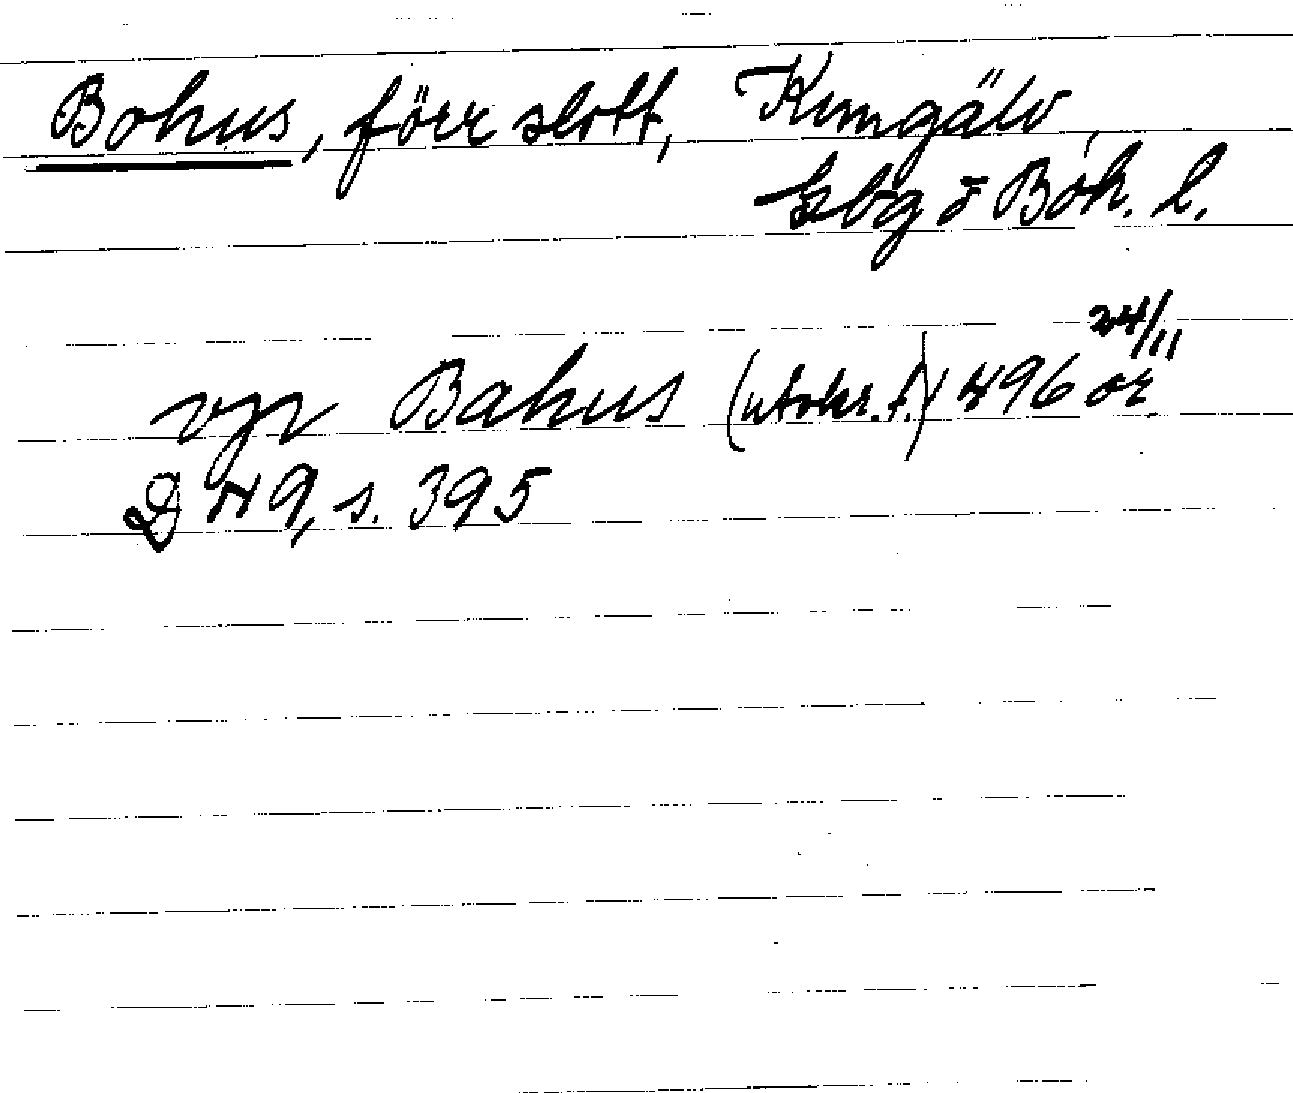 Bohus, förr slott, Kungälv,
Gbg o Boh. l.
vpr Bahus (utskr. f.) 1496 24/11 or.
DN 9, s. 395